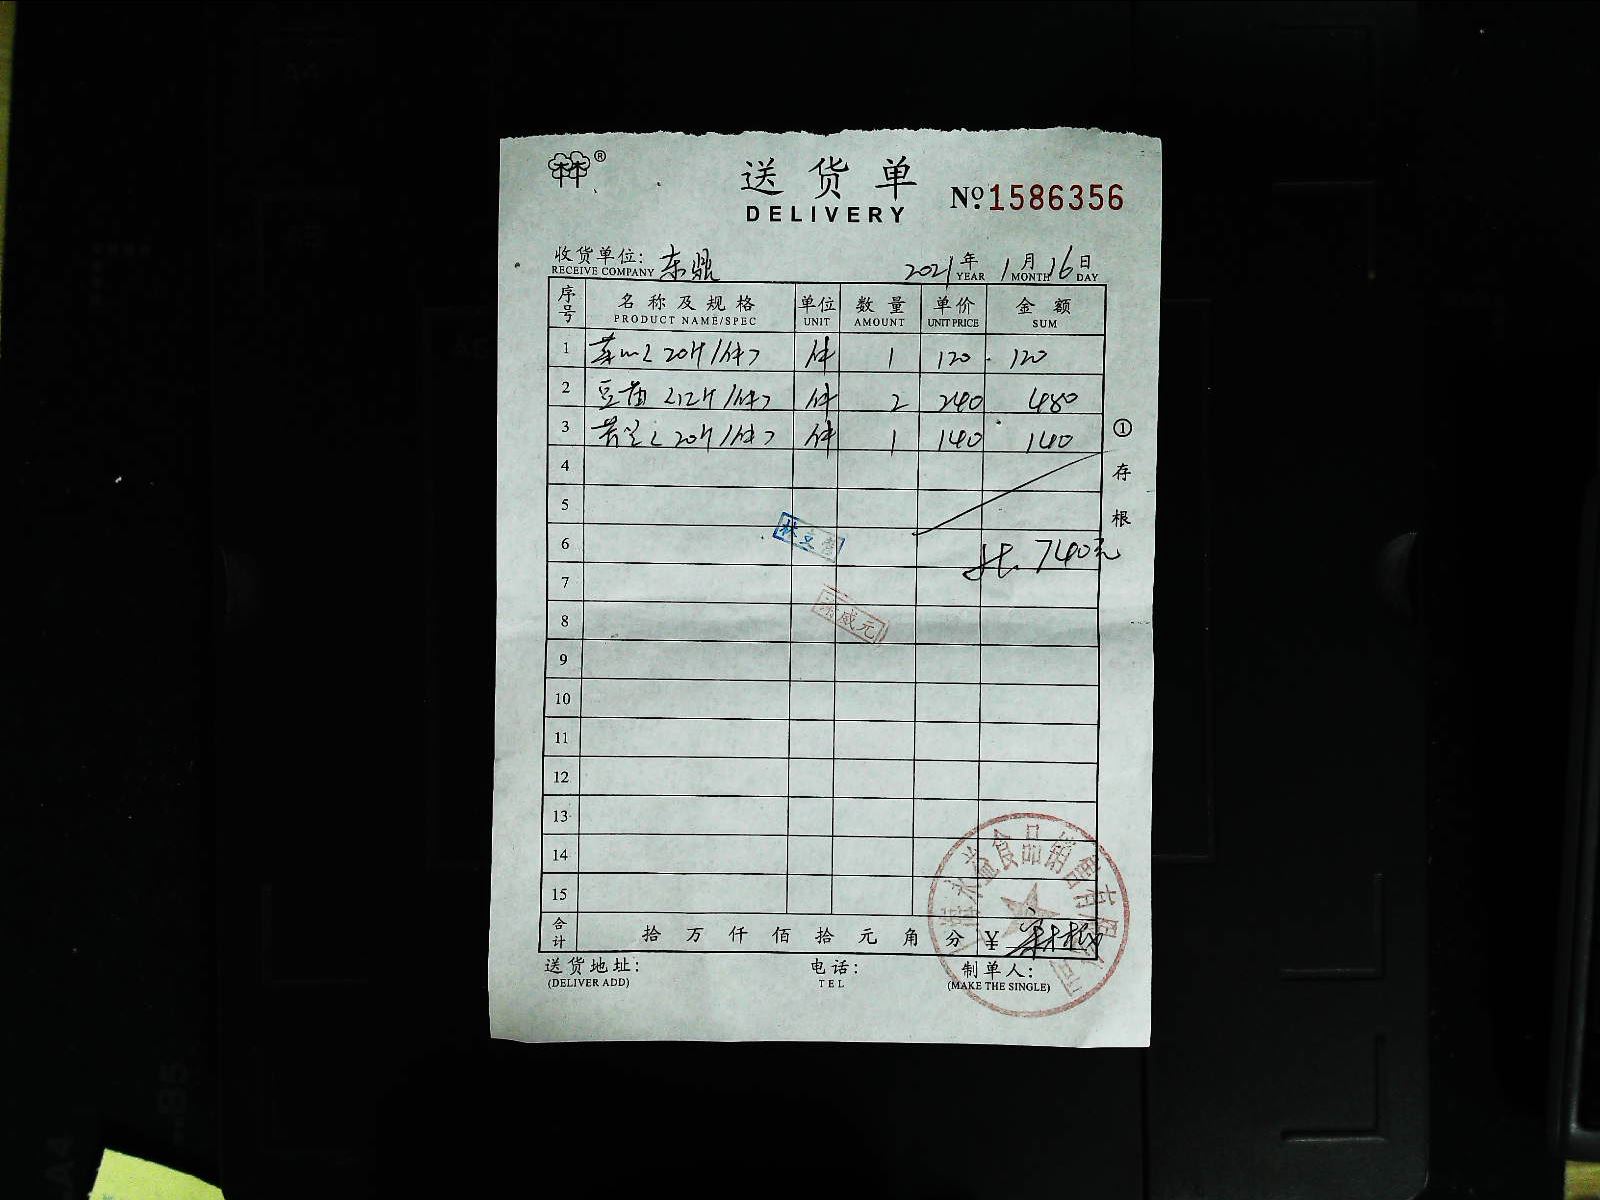 林林®
送货单
DELIVERY
Nº:1586356
收货单位: 东鼎 2021年 1月 16日
RECEIVE COMPANY YEAR MONTH DAY
序号 名称及规格 单位 数量 单价 金额
PRODUCT NAME/SPEC UNIT AMOUNT UNIT PRICE SUM
1 <20斤/件> 件 1 120 120
2 豆苗 <12斤/件> 件 2 240 480
3 <20斤/件> 件 1 140 140
4
5
6 共 740元
7
8
9
10
11
12
13
14
15
① 存根
林文
威元
合计 拾 万 仟 佰 拾 元 角 分 ¥
送货地址: 电话: 制单人:
(DELIVER ADD) TEL (MAKE THE SINGLE)
永益食品销售有限公司
A4
B5